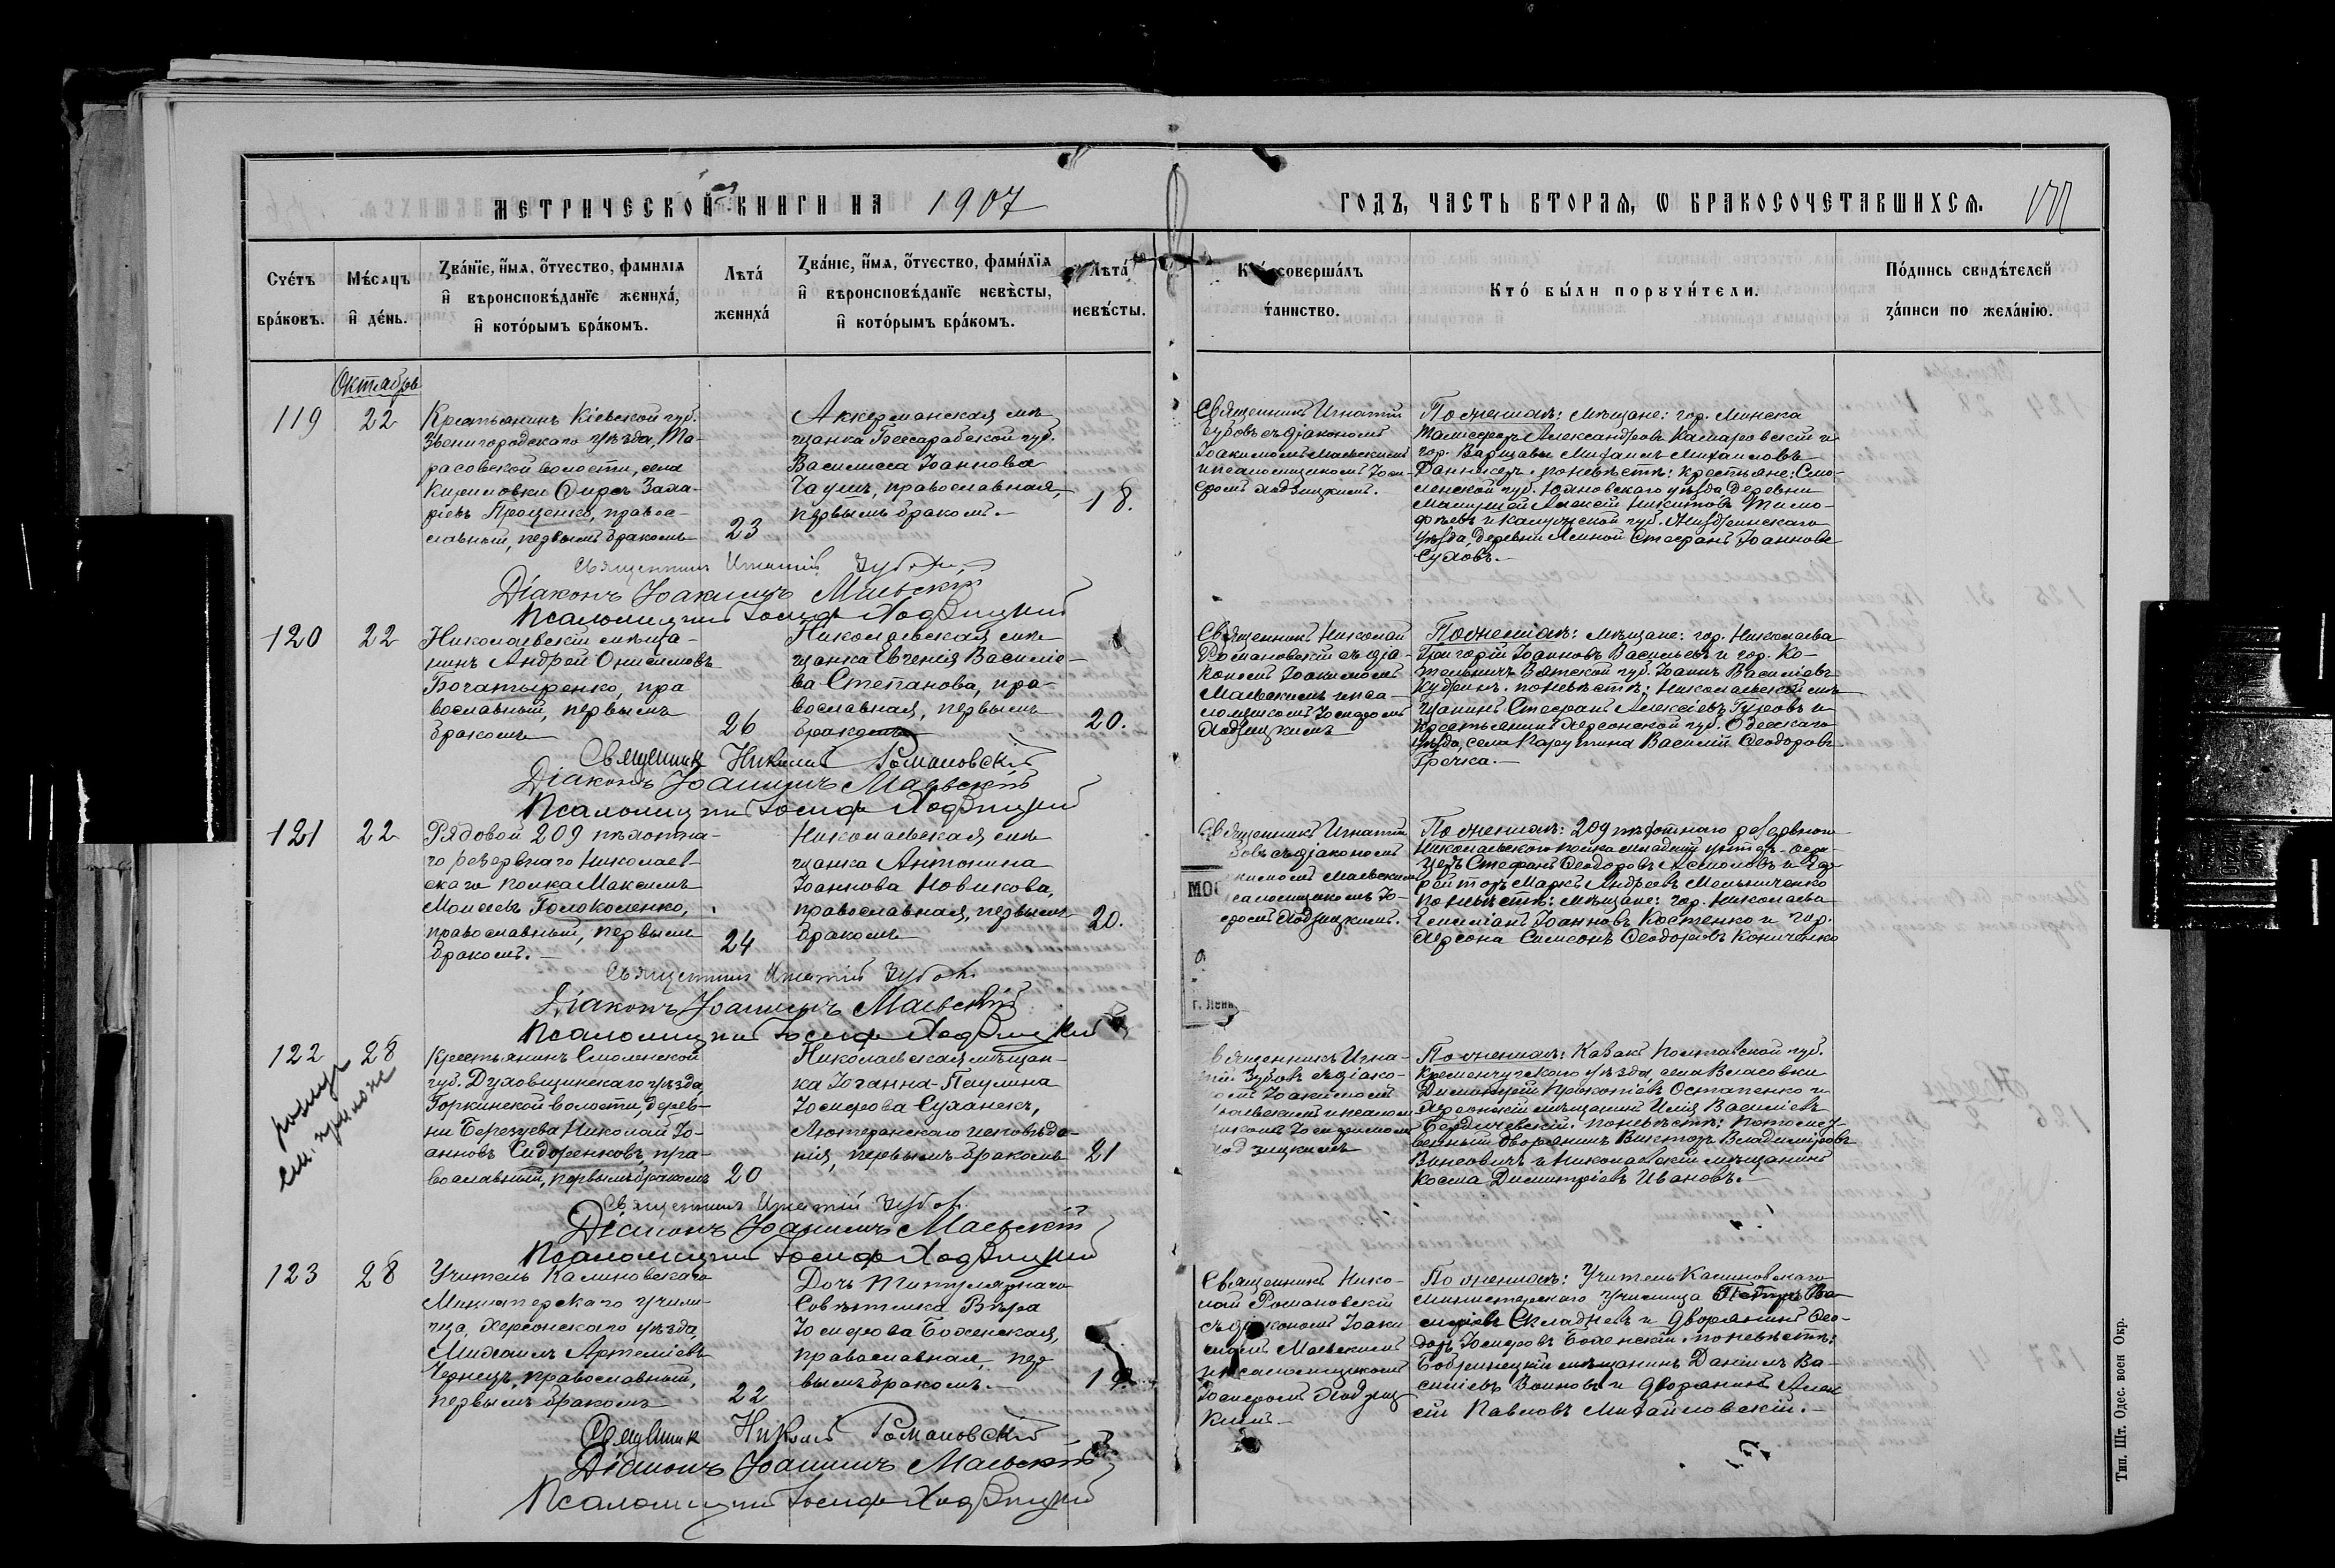 МЕТРИЧЕСКОЙ КНИГИ НА 1907
ГОДЪ, ЧАСТЬ ВТОРАЯ, Ѡ БРАКОСОЧЕТАВШИХСЯ.
Счетъ браковъ.
Мѣсяцъ и день.
Званіе, имя, отчество, фамилія
и вѣроисповѣданіе жениха,
и которымъ бракомъ.
Лѣта
жениха
Званіе, имя, отчество, фамилія
и вѣроисповѣданіе невѣсты,
и которымъ бракомъ.
Лѣта
невѣсты.
Кто совершалъ
таинство.
Кто были поручители.
Подпись свидѣтелей
записи по желанію.
Октябрь
119
22
Крестьянинъ Кіевской губ.
Звенигородскаго уѣзда, Та-
расовской волости, села
Кирилловки Онуфр Заха-
ріевъ Проценко, правос-
славный, первымъ бракомъ
23
Аккерманская мѣ-
щанка Бессарабской губ.
Василиса Іоаннова
Чаушъ, православная,
первымъ бракомъ.
18.
Священникъ Игнатій
Зубовъ съ діакономъ
Іоакимомъ Маевскимъ
и псаломщикомъ Іоси-
фомъ Ходзицкимъ.
По женихѣ: мѣщане: гор. Минска
Александровъ Камаровскій и
гор. Варшавы Михаилъ Михаиловъ
по невѣстѣ: крестьяне: Смо-
ленской губ. Юхновскаго уѣзда деревни
Алексѣй Никитовъ Тимо-
фѣевъ и Калужской губ. Жиздринскаго
уѣзда, деревни Стефанъ Іоанновъ
Суховъ.
Священникъ Игнатій Зубовъ
Діаконъ Іоакимъ Маевскій
Псаломщикъ Іосифъ Ходзицкій
120
22
Николаевскій мѣща-
нинъ Андрей Онисимовъ
Богатыренко, пра
вославный, первымъ
бракомъ
26
Николаевская мѣ-
щанка Евгенія Василіе-
ва Степанова, пра-
вославная, первымъ
бракомъ
20.
Священникъ Николай
Романовскій съ діа-
кономъ Іоакимомъ
Маевскимъ и пса-
ломщикомъ Іосифомъ
Ходзицкимъ
По женихѣ: мѣщане: гор. Николаева
Григорій Іоанновъ Васильевъ и гор. Ко-
тельничъ Вятской губ. Іоаннъ Василіевъ
Кудринъ. по невѣстѣ: Николаевской мѣ-
щанинъ Стефанъ Алексѣевъ Гуровъ и
крестьянинъ Херсонской губ. Одесскаго
уѣзда, села Карутина Василій Ѳеодоровъ
Гречка.
Священникъ Николай Романовскій
Діаконъ Іоакимъ Маевскій
Псаломщикъ Іосифъ Ходзицкій
121
22
Рядовой 209 пѣхотна-
го резервнаго Николаев-
скаго полка Максимъ
Моисеевъ Голоколенко,
православный, первымъ
бракомъ.
24
Николаевская мѣ-
щанка Антонина
Іоаннова Новикова,
православная, первымъ
бракомъ
20.
Священникъ Игнатій
Зубовъ съ діакономъ
Маевскимъ
псаломщикомъ Іо-
сифомъ Ходзицкимъ.
По женихѣ: 209 пѣхотнаго резервнаго
Николаевскаго полка младшій унтеръ-офи-
церъ Стефанъ Ѳеодоровъ и еф-
рейторъ Маркъ Андреевъ Мельниченко
по невѣстѣ: мѣщане: гор. Николаева
Емиліанъ Іоанновъ Костенко и гор.
Херсона Симеонъ Ѳеодоровъ Кониченко
Священникъ Игнатій Зубовъ
Діаконъ Іоакимъ Маевскій
Псаломщикъ Іосифъ Ходзицкій
122
28
см. прилож
Крестьянинъ Смоленской
губ. Духовщинскаго уѣзда
Горкинской волости, дерев-
ни Березнева Николай Іо-
анновъ Сидоренковъ, пра-
вославный, первымъ бракомъ
20
Николаевская мѣщан-
ка Іоганна-Паулина
Іосифова Суханекъ,
Лютеранскаго исповѣда-
нія, первымъ бракомъ
21
Священникъ Игна-
тій Зубовъ съ діако-
номъ Іоакимомъ
Маевскимъ и псалом
щикомъ Іосифомъ
Ходзицкимъ
По женихѣ: Козакъ Полтавской губ.
Кременчугскаго уѣзда, села Власовки
Димитрій Прокопіевъ Остапенко и
Херсонскій мѣщанинъ Илія Василіевъ
Бердичевскій: по невѣстѣ: потомст-
венный дворянинъ Викторъ Владиміровъ
и Николаевскій мѣщанинъ
Косма Димитріевъ Ивановъ.
Священникъ Игнатій Зубовъ
Діаконъ Іоакимъ Маевскій
Псаломщикъ Іосифъ Ходзицкій
123
28
Учитель Калиновскаго
Министерскаго учили-
ща, Херсонскаго уѣзда,
Михаилъ Артеміевъ
Чернецъ, православный,
первымъ бракомъ
22
Дочь Титулярнаго
Совѣтника Вѣра
Іосифова Боженская,
православная, пер
вымъ бракомъ.
19.
Священникъ Нико-
лай Романовскій
съ діакономъ Іоаки
момъ Маевскимъ
и псаломщикомъ
Іосифомъ Ходзиц
кимъ.
По женихѣ: Учитель Калиновскаго
Министерскаго училища Петръ Ва-
силіевъ Складневъ и дворянинъ Ѳео-
доръ Іосифовъ Боженскій: по невѣстѣ:
Бобринецкій мѣщанинъ Даніилъ Ва-
силіевъ Воиновъ и дворянинъ Алек
сій Павловъ Михайловскій.
Священникъ Николай Романовскій
Діаконъ Іоакимъ Маевскій
Псаломщикъ Іосифъ Ходзицкій
Тип. Шт. Одес. воен Окр.